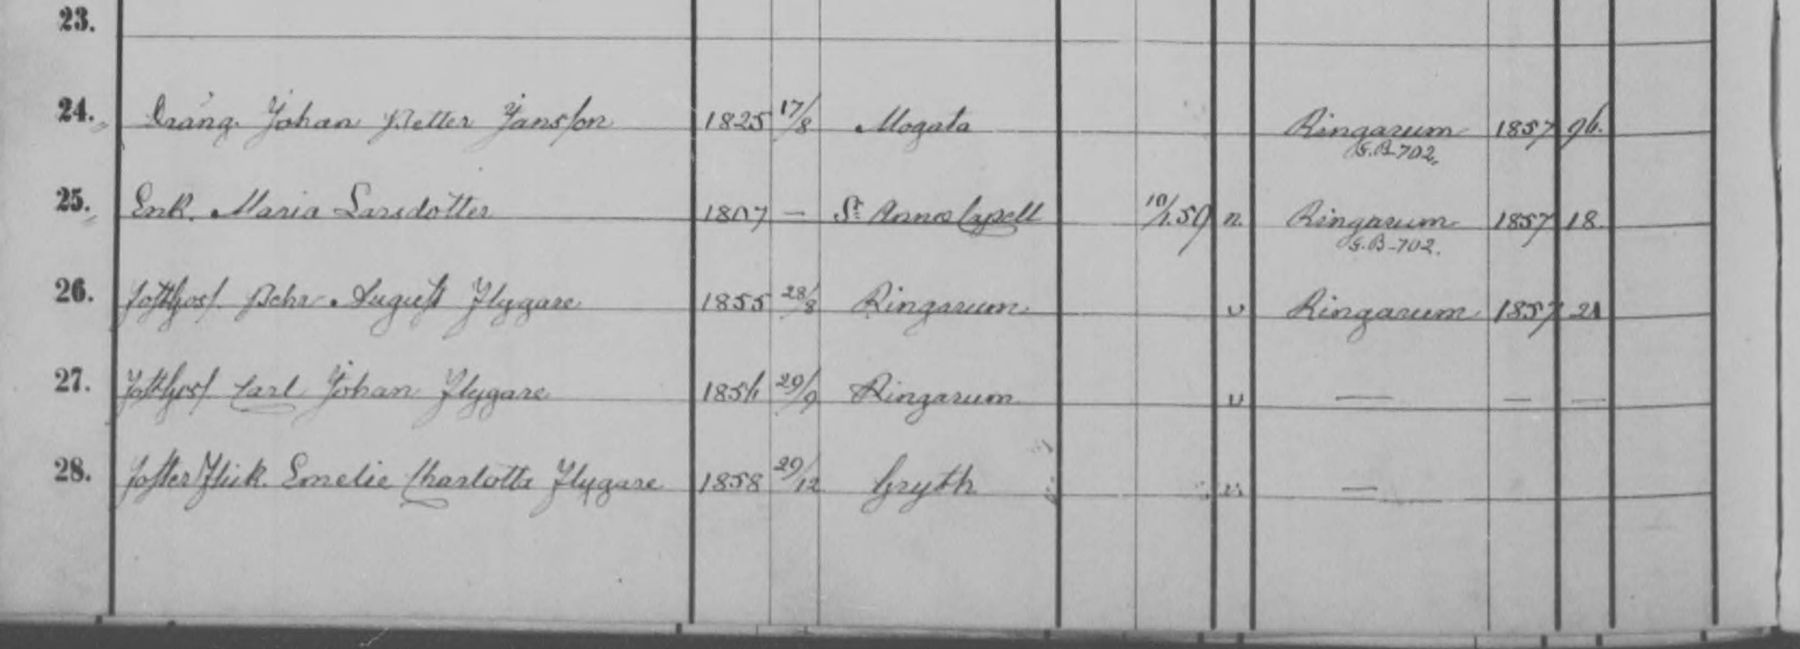 23.
24. Dräng. Johan Petter Jansson 1825 17/8 Mogata Ringarum 1857 96.
G.B-702.
25. Enk. Maria Larsdotter 1807 — St Annæ Capell 10/1.59 n. Ringarum 1857 18.
G.B-702.
26. Pehr August Flygare 1855 28/8 Ringarum u Ringarum 1857 21
27. Carl Johan Flygare 1856 29/9 Ringarum u — — —
28. Foster Flick. Emelie Charlotta Flygare 1858 29/12 Gryth u. —